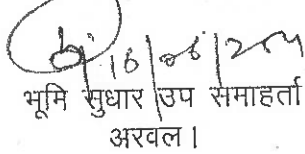 भूमि सुधार उप समाहर्ता
अरवल।